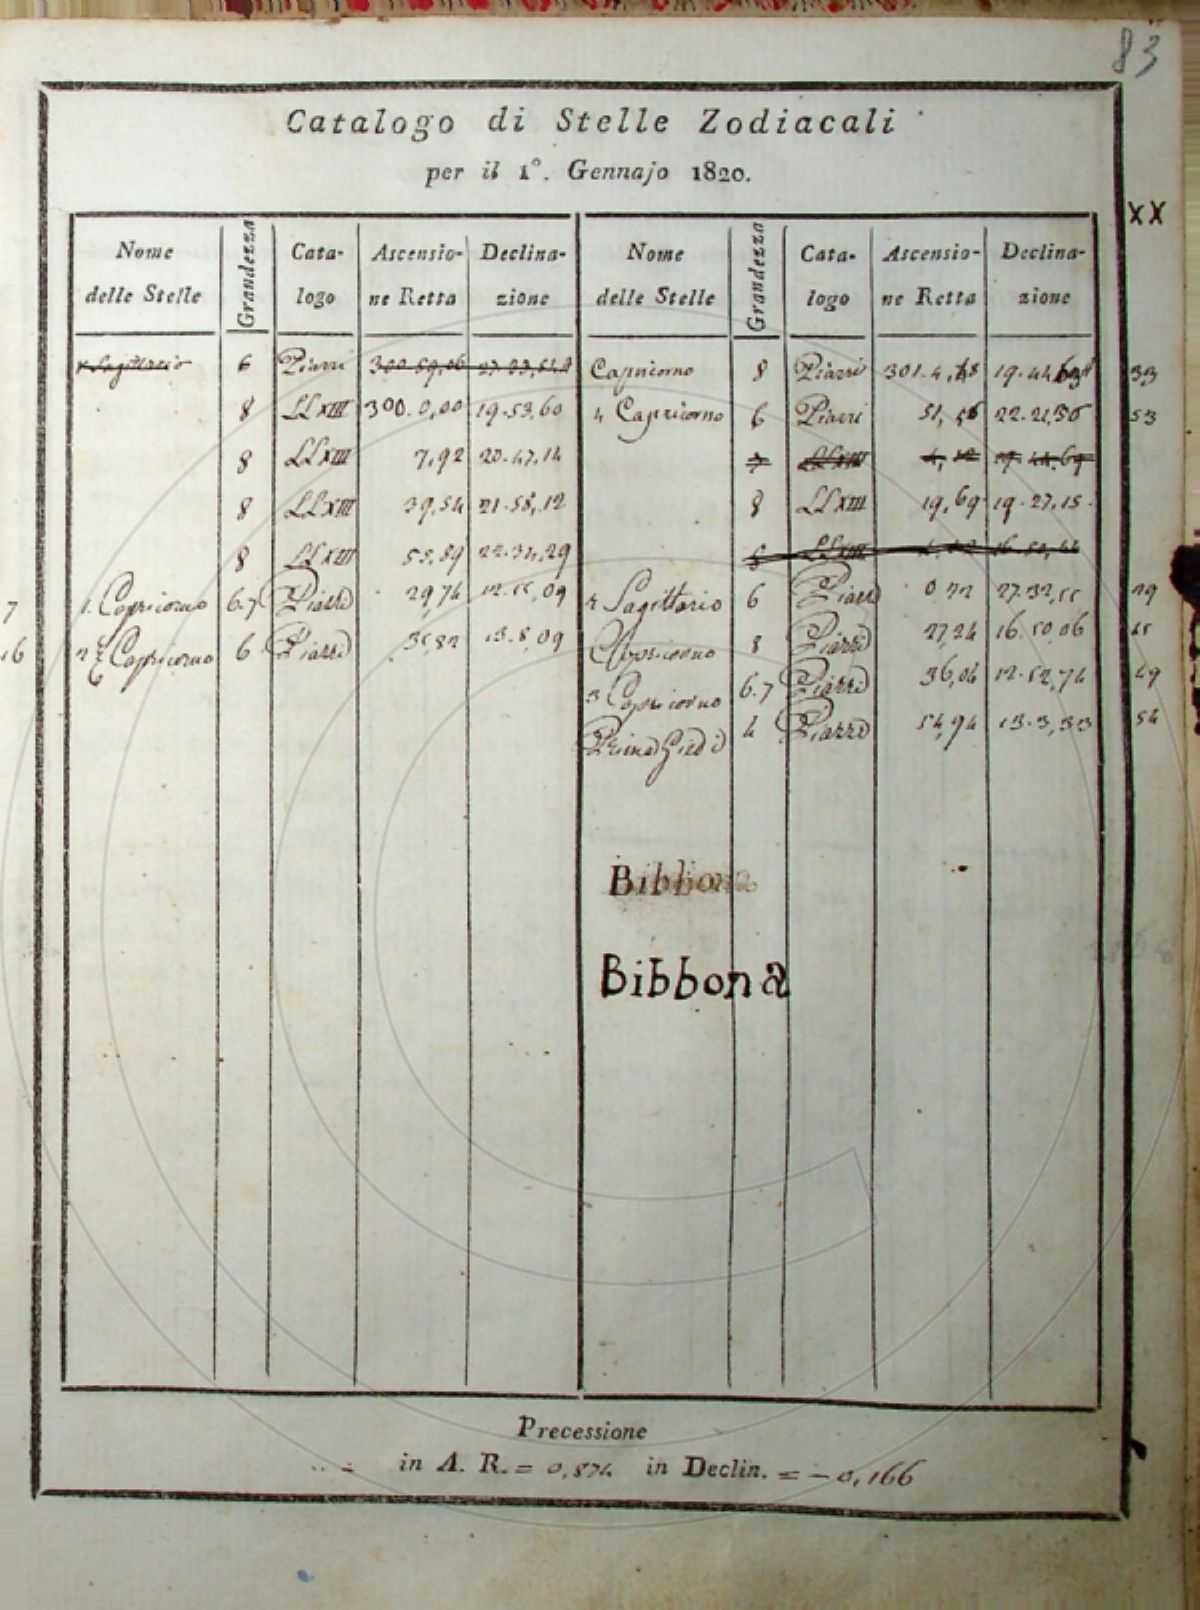 83
Catalogo di Stelle Zodiacali
per il 1°. Gennajo 1820.
XX
Nome delle Stelle Grandezza Cata-logo Ascensio-ne Retta Declina-zione Nome delle Stelle Grandezza Cata-logo Ascensio-ne Retta Declina-zione
Sagittario 6 Piazzi 300.59,06 Capricorno 8 Piazzi 301.4, 19.44 33
8 LLXIII 300.0,00 19.53,60 4 Capricorno 6 Piazzi 51,56 22.21,56 53
8 LLXIII 7,92 20.47,14 7 LLXIII
8 LLXIII 39,54 21.58,12 8 LLXIII 19,69 19.27,15
8 LLXIII 55,89 22.34,29 8 LLXIII
7 1. Capricorno 6.7 Piazzi 29,74 12.55,09 Sagittario 6 Piazzi 0,72 27.32,55 29
16 2 ξ Capricorno 6 Piazzi 35,82 13.8,09 Capricorno 8 Piazzi 27,24 16.50,06 45
3 Capricorno 6.7 Piazzi 36,04 12.52,74 49
Prima Giedi 4 Piazzi 54,94 13.3,33 54
Bibbona
Bibbona
Precessione
in A. R. = 0,874 in Declin. = - 0,166